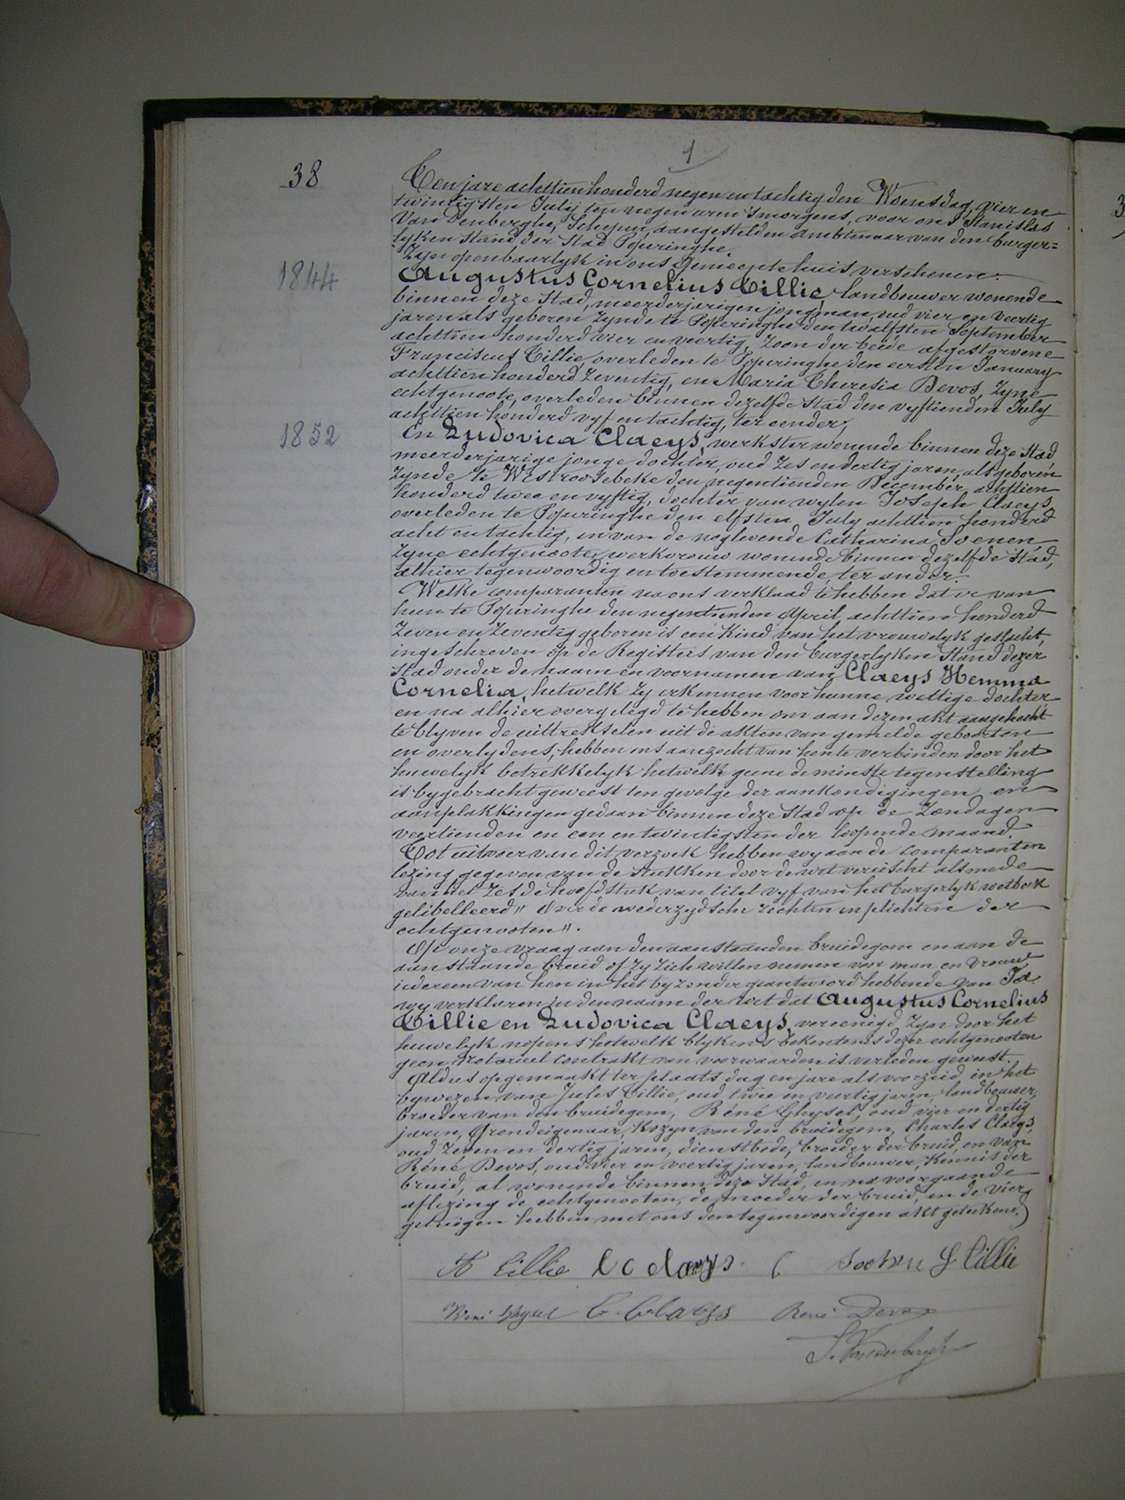 1
38
Ten jare achttien honderd negen en tachtig den Woensdag, vier en
twintigsten July ten negen uren 's morgens, voor ons Stanislas
Van Denberghe, Schepen, aangestelden ambtenaar van den burger=
lyken Stand der Stad Poperinghe.
Zyn openbaarlyk in ons Gemeentehuis verschenen:
1844
Augustus Cornelius Cillie, landbouwer wonende
binnen deze Stad, meerderjarigen jongman, oud vier en veertig
jaren als geboren zynde te Poperinghe den twalfsten September
achttien honderd vier en veertig, Zoon der beide afgestorvene
Franciscus Cillie, overleden te Poperinghe den eersten January
achttien honderd zeventig, en Maria Theresia Devos, zyne
echtgenoote, overleden binnen dezelfde Stad den vyftienden July
achttien honderd vyf en tachtig, ter eender;
1852
En Ludovica Claeys, werkster wonende binnen deze Stad
meerderjarige jonge dochter, oud zes en dertig jaren, als geboren
zynde te Westroosebeke den negentienden December, achttien
honderd twee en vyftig, dochter van wylen Joseph Claeys,
overleden te Poperinghe den elfsten July achttien honderd
acht en tachtig, en van de noglevende Catharina Soenen
zyne echtgenoote, werkvrouw wonende binnen dezelfde Stad,
alhier tegenwoordig en toestemmende, ter ander.
Welke comparanten na ons verklaad te hebben dat er van
hun te Poperinghe den negentienden April, achttien honderd
zeven en zeventig geboren is een Kind van het vrouwelyk geslacht,
ingeschreven op de Registers van den burgerlyken Stand dezer
Stad onder de naam en voornamen van Claeys Hemma
Cornelia, hetwelk zy erkennen voor hunne wettige dochter
en na alhier overgelegd te hebben om aan dezen akt aangehecht
te blyven de uittrekselen uit de akten van gemelde geboorten
en overlydens, hebben ons aanzocht van hen te verbinden door het
huwelyk betrekkelyk hetwelk geene deminste tegenstelling
is bygebracht geweest ten gevolge der aankondigingen en
aanplakkingen gedaan binnen deze Stad op de Zondagen
veertienden en een en twintigsten der loopende maand.
Tot uitvoer van dit verzoek hebben wy aan de comparanten
lezing gegeven van de stukken door de wet vereischt alsmede
van het zesde hoofdstuk van titel vyf van het burgerlyk wetboek
gelibelleerd "Over de wederzydsche rechten en plichten der
echtgenooten".
Op onze vraag aan den aanstaanden bruidegom en aan de
aanstaande bruid of zy zich willen nemen voor man en vrouw
iedereen van hen in het byzonder geantwoord hebbende van Ja
wy verklaren in den naam der wet dat Augustus Cornelius
Cillie en Ludovica Claeys, vereenigd zyn door het
huwelyk nopens hetwelk blykens bekentenis dezer echtgenooten
geen notarieel contrakt van voorwaarden is verleden geweest.
Aldus opgemaakt ter plaats dag en jare als voorzeid in het
bywezen van Jules Cillie, oud twee en veertig jaren, landbouwer,
broeder van den bruidegom, Réné Ghysel, oud vier en dertig
jaren, Grondeigenaar, Kozyn van den bruidegom, Charles Claeys,
oud zeven en dertig jaren, dienstbode, broeder der bruid, en van
Réné Devos, oud vier en veertig jaren, landbouwer, Kennis der
bruid, al wonende binnen deze Stad, en na voorgaande
aflezing de echtgenooten, de moeder der bruid, en de vier
getuigen hebben met ons den tegenwoordigen akt geteekend.
A Cillie L C claeys C Soenen J Cillie
René Ghysel C Claeys René Devos
S. Vandenberghe
3